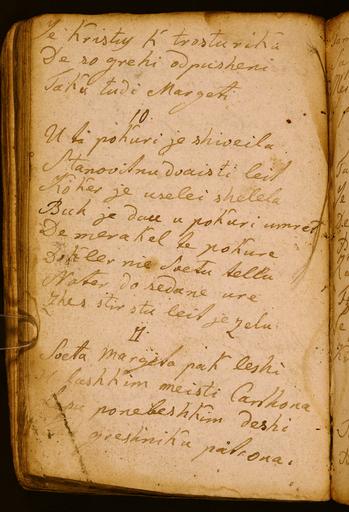 Je Kristus k trostu rika
De so grehi odpusheni
Taku tudi Margeti
10.
U ti pokuri je shivela
Stanovitnu dvaisti leit
Koker je uselei shelela
Buh je dau u pokuri umret
De merakel te pokure
Dokler nie Svetu tellu
Noter do sedane ure
Zhes stir stu leit je zelu
11
Sveta Margeta pak leshi
lashkim meisti Cartkona
ponebeshkim deshi
greshniku patrona.